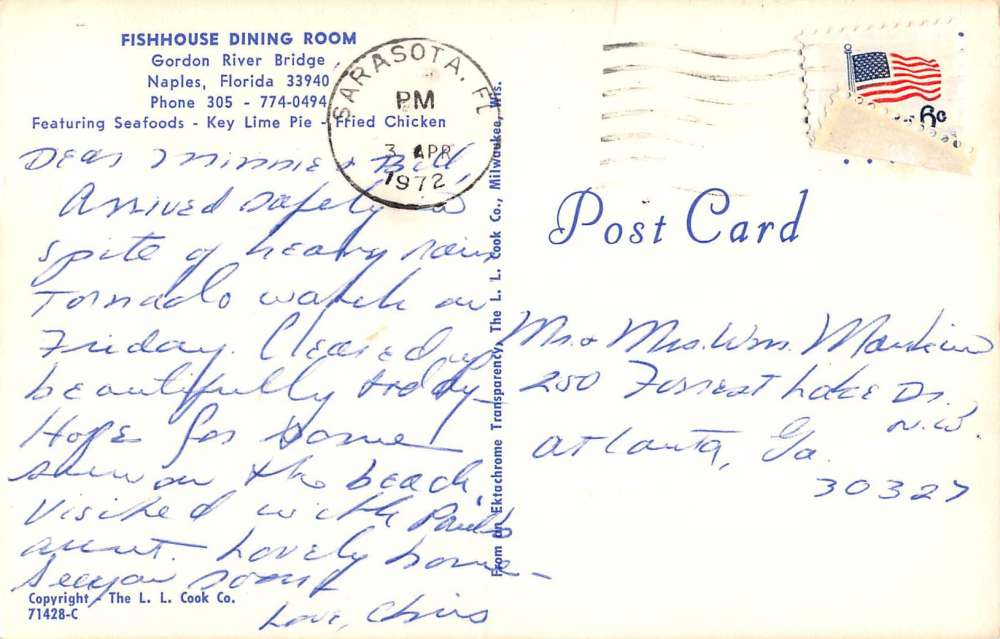 FISHHOUSE DINING ROOM
Gordon River Bridge
Naples, Florida 33940
Phone 305 - 774-0494
Featuring Seafoods - Key Lime Pie - Fried Chicken
SARASOTA, FL
PM
3 APR
1972
6c
Dear Minnie & Bill,
Arrived safely in
spite of heavy rain
Tornado watch on
Friday. Cleared up
beautifully today -
Hope for some
sun on the beach.
Visited with Paul's
aunt. Lovely home -
See you soon
Love, Chris
Copyright - The L. L. Cook Co.
71428-C
From an Ektachrome Transparency, The L. L. Cook Co., Milwaukee, Wis.
Post Card
Mr. & Mrs. Wm.
250 Forrest Lake Dr.
N.W.
Atlanta, Ga.
30327